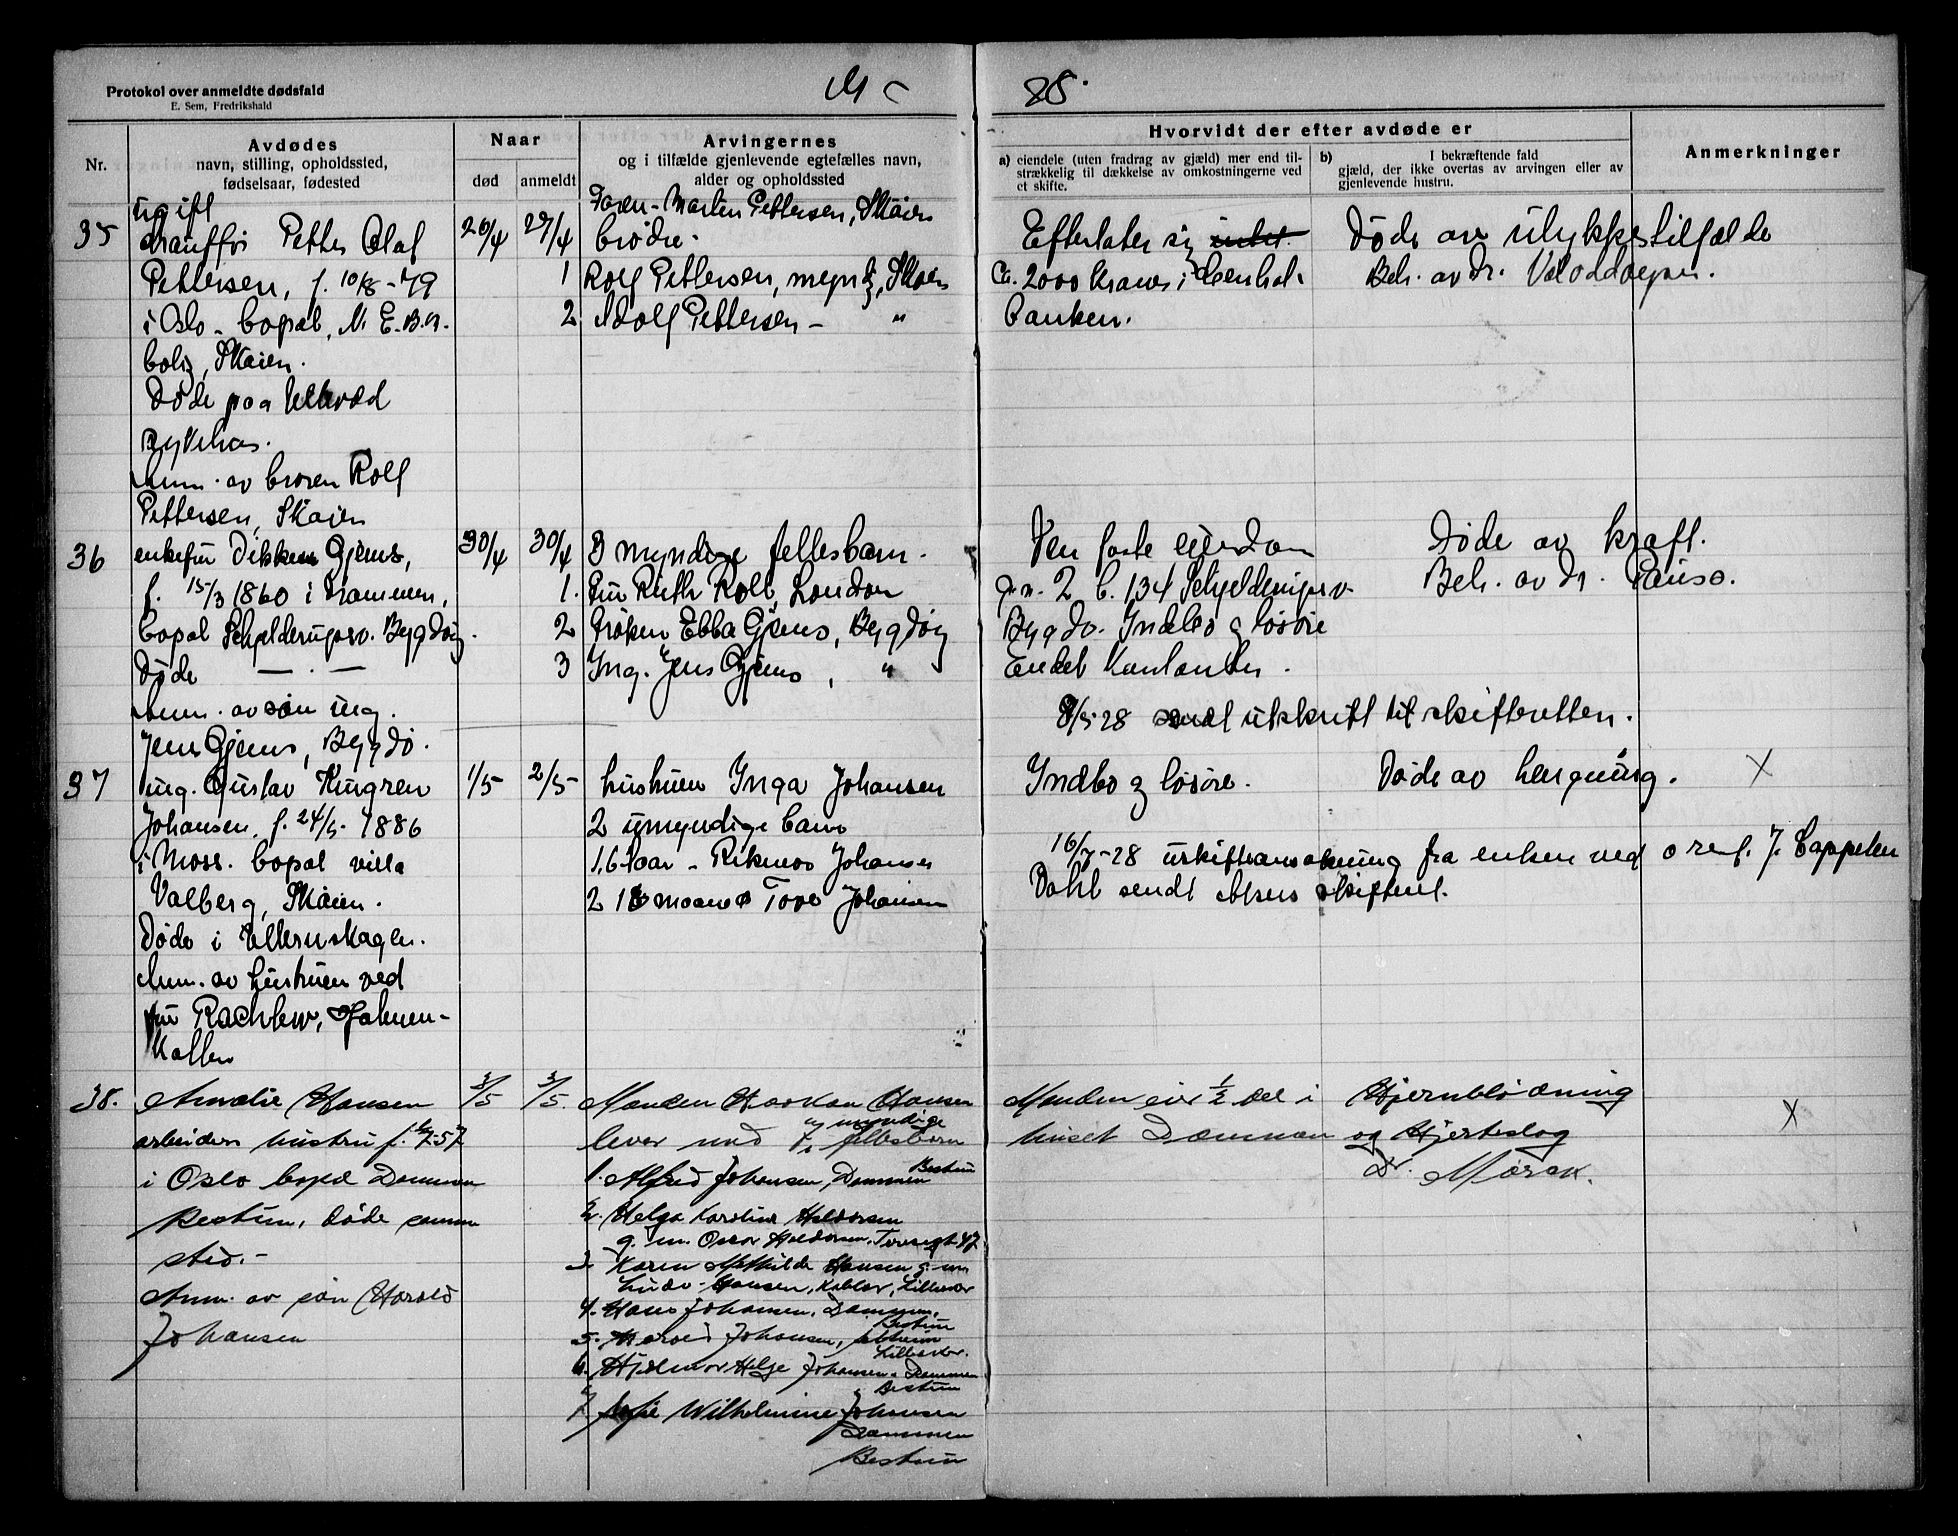 Protokol over anmeldte dødsfald
E. Sem, Fredrikshald
85.
Nr.
Avdødes
navn, stilling, opholdssted,
fødselsaar, fødested
Naar
død
anmeldt
Arvingernes
og i tilfælde gjenlevende egtefælles navn,
alder og opholdssted
Hvorvidt der efter avdøde er
a) eiendele (uten fradrag av gjæld) mer end til-
strækkelig til dækkelse av omkostningerne ved
et skifte.
b) I bekræftende fald
gjæld, der ikke overtas av arvingen eller av
gjenlevende hustru.
Anmerkninger
35
ugift
Petter Olaf
Pettersen, f. 10/8-79
i Oslo - bopæl, N. E. B. A.
bolig, Skøien.
Døde paa Ullevaal
sykehus.
Anm. av broren Rolf
Pettersen, Skøien
26/4
27/4
Faren - Martin Pettersen, Skøien
brødre -
1 Rolf Pettersen, myndig, Skøien
2 Adolf Pettersen - "
Efterlater sig intet.
Ca. 2000 kroner i Central-
banken.
Døde av ulykkestilfælde
Beh. av dr.
36
enkefru Gjems,
f. 15/3 1860 i Drammen,
bopæl Schjelderupsv. Bygdøy.
Døde — . —
Anm. av søn ing.
Jens Gjems, Bygdø.
30/4
30/4
3 myndige fellesbarn.
1. fru Ruth Roll, London
2 frøken Ebba Gjems, Bygdøy
3 Ing. Jens Gjems, "
Den faste eiendom
g.n. 2 b. 134 Schjelderupsv.
Bygdø. Indbo og løsøre
Endel kontanter.
8/5 28 sendt utskrift til skifteretten.
Døde av kræft.
Beh. av dr. Pauss.
37
ing. Gustav Kungren
Johansen, f. 24/5 - 1886
i Moss. bopæl villa
Valberg, Skøien.
Døde i Ullernskogen.
Anm. av hustruen ved
fru Rachlew, Holmen-
kollen
1/5
2/5
hustruen Inga Johansen
2 umyndige barn
1. 6 1/2 aar - Johansen
2 18 maaneder Tove Johansen
Indbo og løsøre.
Døde av hengning.
X
16/7-28 fra enken ved o.r.sf. J. Cappelen
Dahl sendt Akers skifterett.
38.
Amalie Hansen
arbeiders hustru f. 57
i Oslo bopæl Dammen
Bestum, døde samme
sted.-
Anm. av søn Harald
Johansen
3/5
3/5.
Manden Haakon Hansen
lever med 7 myndige fellesbarn
1. Alfred Johansen, Dammen Bestum
2. Helga Karoline Haldorsen
g. m. Oscar Haldorsen, 47
3 Karen Mathilde Hansen g. m.
Hansen, Lilleaker
4. Hans Johansen, Dammen, Bestum
5. Harald Johansen,
Lilleaker.
6. Hjalmar Helge Johansen - Dammen
Bestum
7 Wilhelmine Johansen
Dammen
Bestum
Manden eier 1/2 del i
huset Dammen
Hjerneblødning
og Hjerteslag
Dr. Mørck.
X